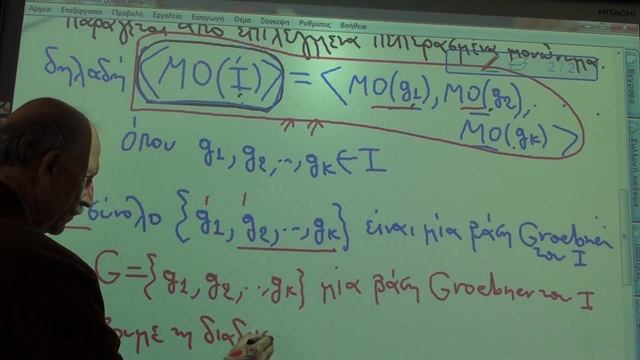 Αρχείο Επεξεργασία Προβολή Εργαλεία Εισαγωγή Θέμα Σύσκεψη Ρυθμίσεις Βοήθεια
HITACHI
παράγεται από επιλεγμένα πεπερασμένα μονώνυμα.
2/2
δηλαδή <MO(I)> = <MO(g1), MO(g2),
MO(gk)>
όπου g1, g2, .., gk ∈ I
σύνολο {g1, g2, .., gk} είναι μία βάση Groebner
του I
G = {g1, g2, .., gk} μία βάση Groebner του I